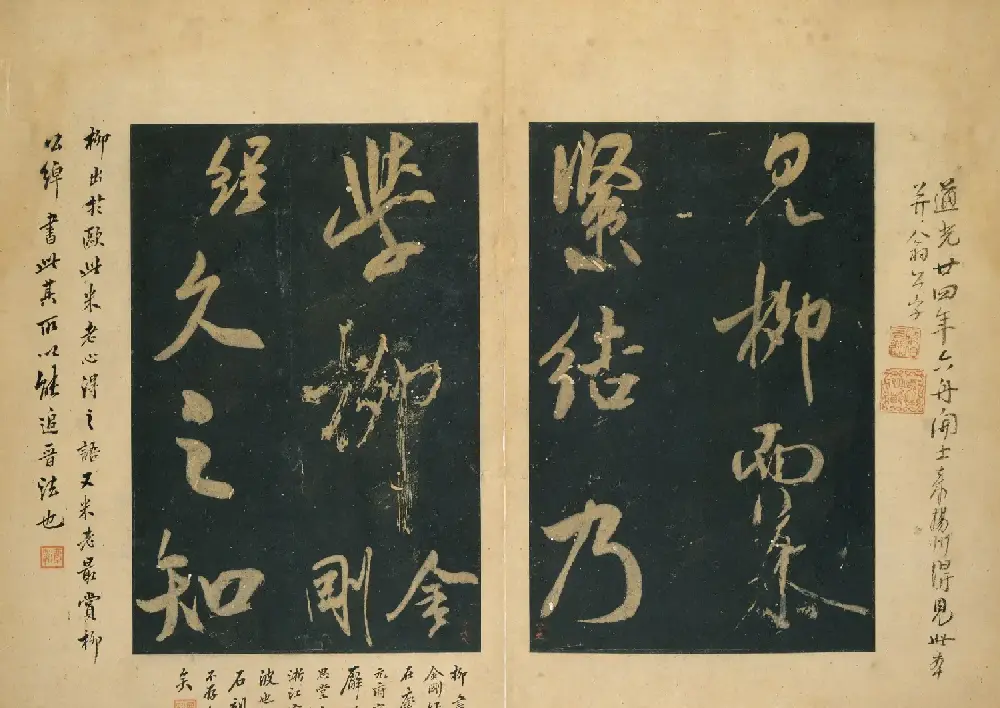 道光廿四年六舟開士來揚州得見此本
并翁公字
見柳而慕
緊結乃
學柳金剛
經久之知
柳出於歐此米老心得之語又米老最賞柳
公綽書此其所以能追晉法也
柳書
金剛
在
元府
思堂
浙江
波也
石刻
不存
矣